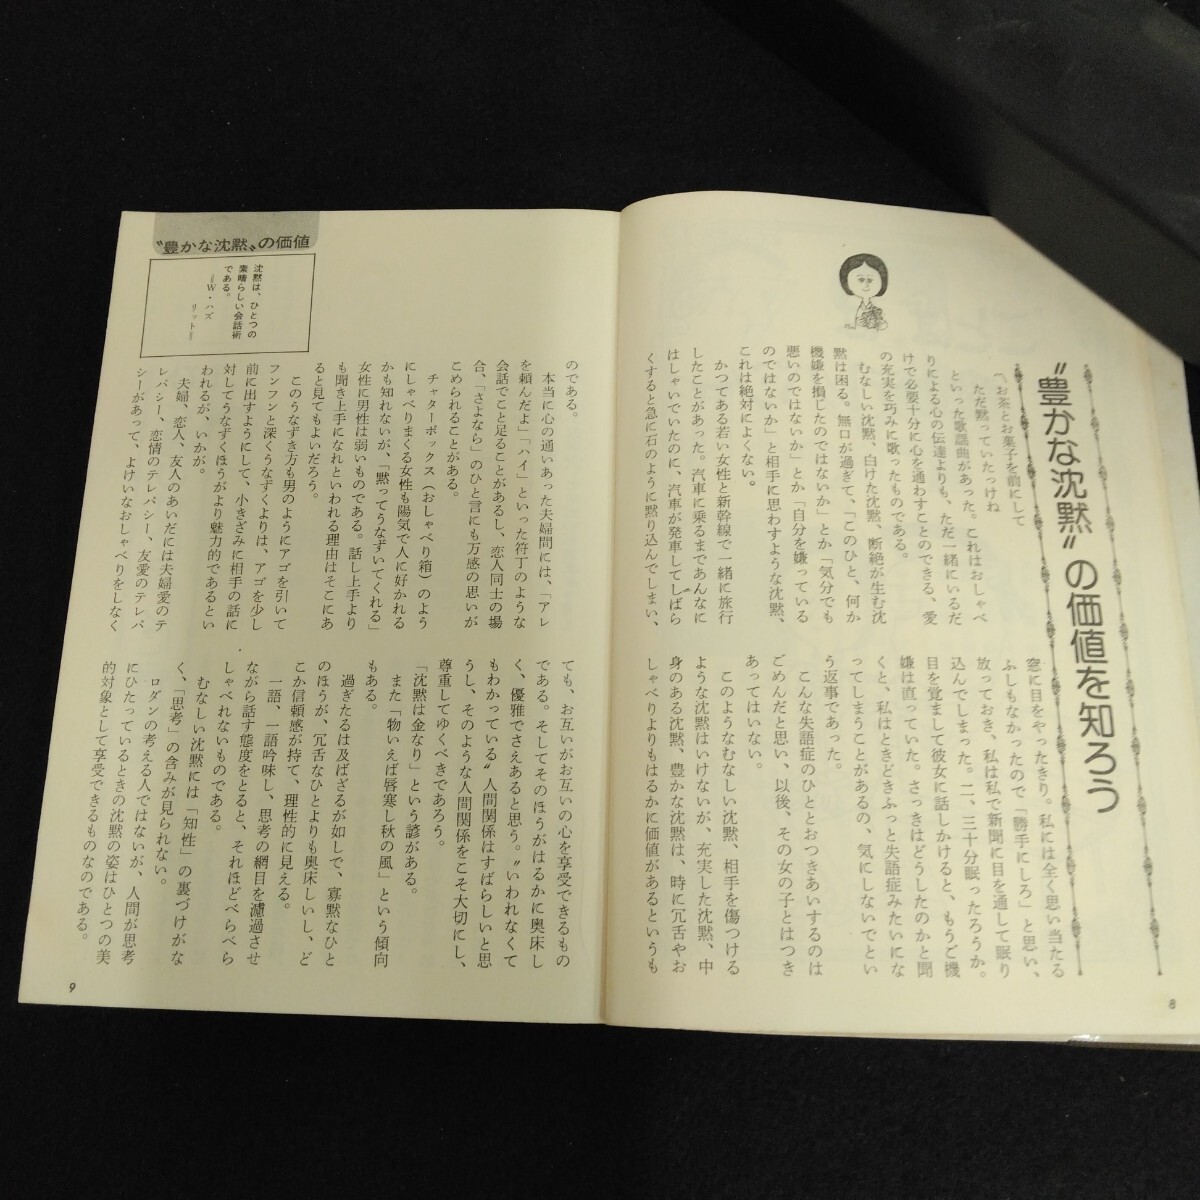 〝豊かな沈黙〟の価値を知ろう
〽お茶とお菓子を前にして
ただ黙っていたっけね
といった歌謡曲があった。これはおしゃべ
りによる心の伝達よりも、ただ一緒にいるだ
けで必要十分に心を通わすことのできる、愛
の充実を巧みに歌ったものである。
むなしい沈黙、白けた沈黙、断絶が生む沈
黙は困る。無口が過ぎて、「このひと、何か
機嫌を損じたのではないか」とか「気分でも
悪いのではないか」とか「自分を嫌っている
のではないか」と相手に思わすような沈黙、
これは絶対によくない。
かつてある若い女性と新幹線で一緒に旅行
したことがあった。汽車に乗るまであんなに
はしゃいでいたのに、汽車が発車してしばら
くすると急に石のように黙り込んでしまい、
窓に目をやったきり。私には全く思い当たる
ふしもなかったので「勝手にしろ」と思い、
放っておき、私は私で新聞に目を通して眠り
込んでしまった。二、三十分眠ったろうか。
目を覚まして彼女に話しかけると、もうご機
嫌は直っていた。さっきはどうしたのかと聞
くと、私はときどきふっと失語症みたいにな
ってしまうことがあるの、気にしないでとい
う返事であった。
こんな失語症のひととおつきあいするのは
ごめんだと思い、以後、その女の子とはつき
あってはいない。
このようなむなしい沈黙、相手を傷つける
ような沈黙はいけないが、充実した沈黙、中
身のある沈黙、豊かな沈黙は、時に冗舌やお
しゃべりよりもはるかに価値があるというも
8
〝豊かな沈黙〟の価値
沈黙は、ひとつの
素晴らしい会話術
である。
＝W・ハズ
リット＝
のである。
本当に心の通いあった夫婦間には、「アレ
を頼んだよ」「ハイ」といった符丁のような
会話でこと足ることがあるし、恋人同士の場
合、「さよなら」のひと言にも万感の思いが
こめられることがある。
チャターボックス（おしゃべり箱）のよう
にしゃべりまくる女性も陽気で人に好かれる
かも知れないが、「黙ってうなずいてくれる」
女性に男性は弱いものである。話し上手より
も聞き上手になれといわれる理由はそこにあ
ると見てもよいだろう。
このうなずき方も男のようにアゴを引いて
フンフンと深くうなずくよりは、アゴを少し
前に出すようにして、小きざみに相手の話に
対してうなずくほうがより魅力的であるとい
われるが、いかが。
夫婦、恋人、友人のあいだには夫婦愛のテ
レパシー、恋情のテレパシー、友愛のテレパ
シーがあって、よけいなおしゃべりをしなく
ても、お互いがお互いの心を享受できるもの
である。そしてそのほうがはるかに奥床し
く、優雅でさえあると思う。〝いわれなくて
もわかっている〟人間関係はすばらしいと思
うし、そのような人間関係をこそ大切にし、
尊重してゆくべきであろう。
「沈黙は金なり」という諺がある。
また「物いえば唇寒し秋の風」という傾向
もある。
過ぎたるは及ばざるが如しで、寡黙なひと
のほうが、冗舌なひとよりも奥床しいし、ど
こか信頼感が持て、理性的に見える。
一語、一語吟味し、思考の網目を濾過させ
ながら話す態度をとると、それほどべらべら
しゃべれないものである。
むなしい沈黙には「知性」の裏づけがな
く、「思考」の含みが見られない。
ロダンの考える人ではないが、人間が思考
にひたっているときの沈黙の姿はひとつの美
的対象として享受できるものなのである。
9